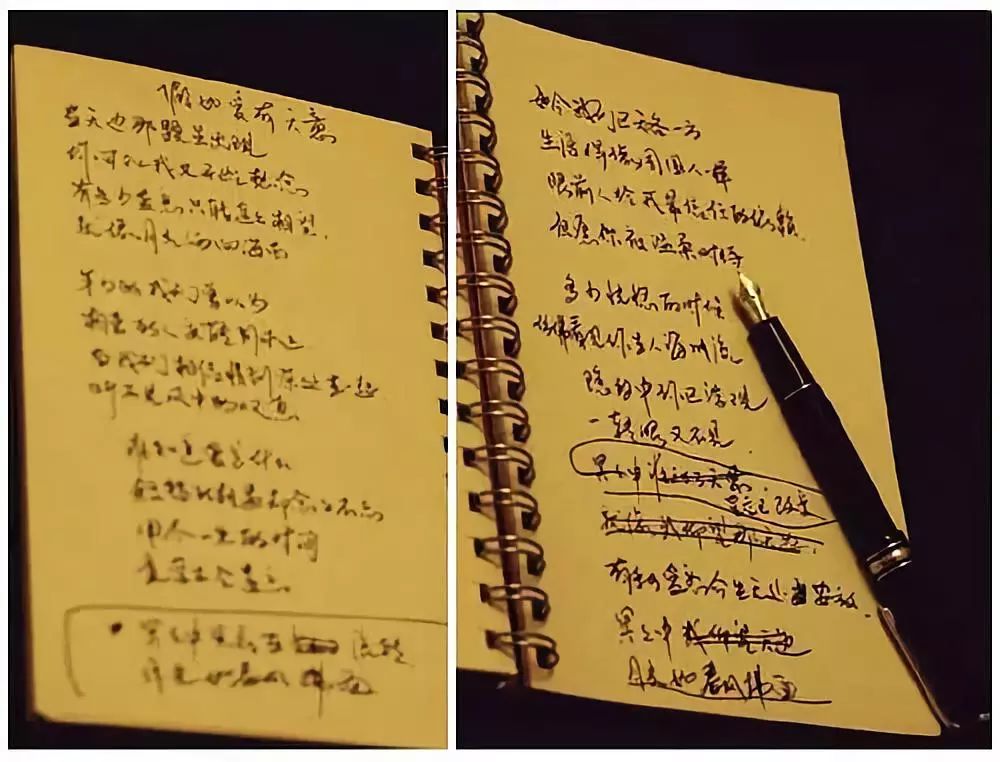 假如爱有天意
当天边那颗星出现
你可知我又开始想念
有多少爱恋只能遥遥相望
就像月光洒向海面
年少的我们曾以为
相爱的人就能到永远
当我们相信情到深处在一起
听不见风中的叹息
谁知道爱是什么
短暂的相遇却念念不忘
用尽一生的时间
冥冥中
如今我们已天各一方
生活得像周围人一样
眼前人给我最信任的依赖
但愿你被温柔对待
多少恍惚的时候
仿佛看见你在人海川流
隐约中你已浮现
一转眼又不见
冥冥中
有多少爱恋今生无处安放
冥冥中
月光如春风拂面